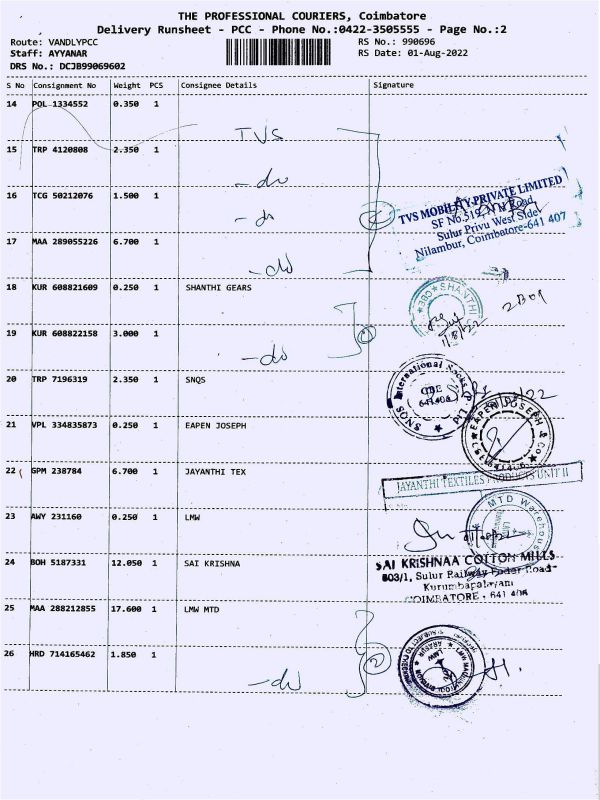 THE PROFESSIONAL COURIERS, Coimbatore
Delivery Runsheet - PCC - Phone No.:0422-3505555 - Page No.:2
Route: VANDLYPCC RS No.: 990696
Staff: AYYANAR RS Date: 01-Aug-2022
DRS No.: DCJB99069602
S No Consignment No Weight PCS Consignee Details Signature
14 POL 1334552 0.350 1
TVS
15 TRP 4120808 2.350 1
-do
16 TCG 50212076 1.500 1
-do
TVS MOBILITY PRIVATE LIMITED
SF No.519, Road
Sulur Privu West Side
Nilambur, Coimbatore-641 407
17 MAA 289055226 6.700 1
-do
18 KUR 608821609 0.250 1 SHANTHI GEARS
SHANTHI
1/8/22
19 KUR 608822158 3.000 1
-do
20 TRP 7196319 2.350 1 SNQS
SNQS International Ltd
CBE
641406
21 VPL 334835873 0.250 1 EAPEN JOSEPH
EAPEN JOSEPH & Co
22 GPM 238784 6.700 1 JAYANTHI TEX
JAYANTHI TEXTILES PRODUCTS UNIT II
23 AWY 231160 0.250 1 LMW
MTD Warehouse
24 BOH 5187331 12.050 1 SAI KRISHNA
SAI KRISHNAA COTTON MILLS
803/1, Sulur Railway Feder Road
Kurumbapalayam
COIMBATORE - 641 406
25 MAA 288212855 17.600 1 LMW MTD
26 HRD 714165462 1.850 1
-do
2